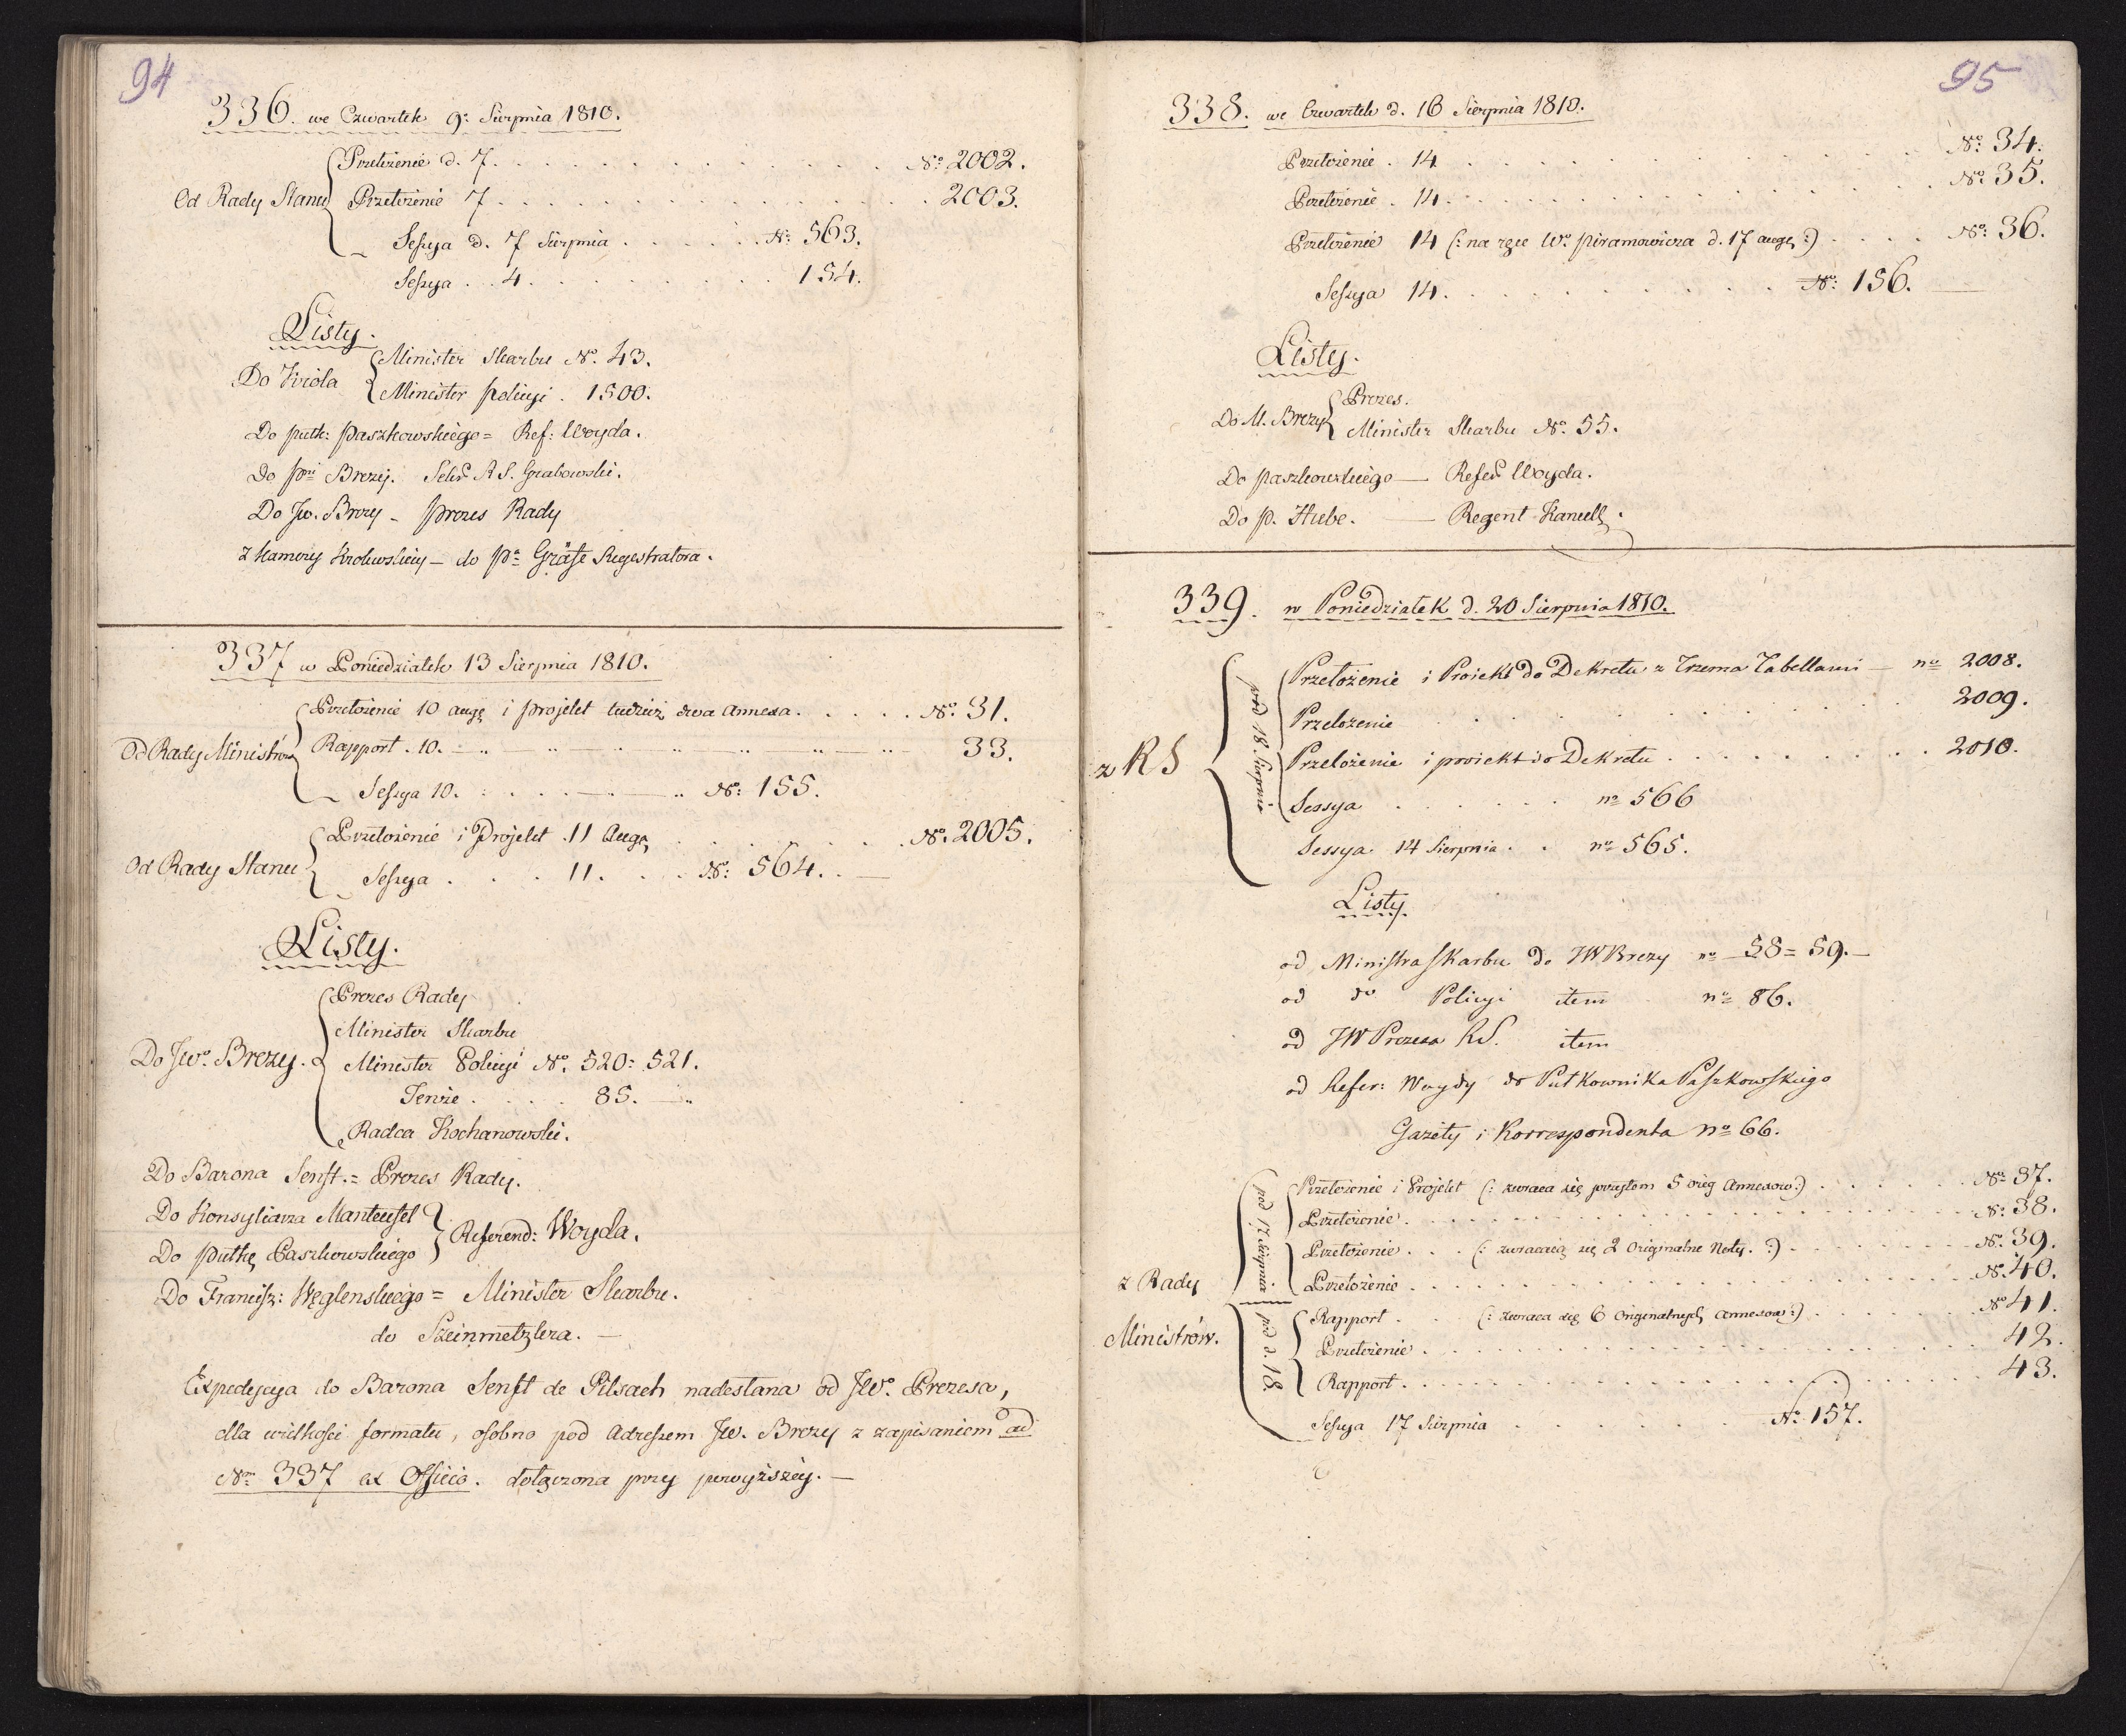 94
336. we Czwartek 9. Sierpnia 1810.
Przełożenie d. 7. . . . . . . . . . . . . . . . No: 2002.
Od Rady Stanu Przełożenie 7 . . . . . . . . . . . . . . . . 2003.
Sessya d. 7 Sierpnia . . . . . . No: 563.
Sessya . . 4. . . . . . . . . . 154.
Listy.
Do Króla
Minister Skarbu No. 43.
Minister policyi . 1500.
Do pułk: Paszkowskiego = Ref: Woyda.
Do Brezy. R S. Grabowski.
Do Jw. Brezy - prezes Rady
z kamery Krolewskiey — do Gräfe Regestratora.
337 w Poniedziałek 13 Sierpnia 1810.
Przełożenie 10 aug. i projekt tudzież dwa Annexa. . . . . No. 31.
Od Rady Ministrów Rapport . 10. 33.
Sessya 10. No: 155.
Przełożenie i Projekt . 11 Aug. No. 2005.
Od Rady Stanu Sessya . . . 11. . . . No: 564. . —
Listy.
Prezes Rady
Minister Skarbu
Do Jwo. Brezy. Minister Policyi No. 520: 521.
Tenże . . . . 85. —
Radca Kochanowski.
Do Barona Senft. = Prezes Rady.
Do Konsyliarza Manteufel
Referend: Woyda.
Do pułk. Paszkowskiego
Do Francisz: Węglenskiego = Minister Skarbu.
do Szeinmetzlera. —
Expedycya do Barona Senft de Pilsach nadesłana od Jwo. Prezesa,
dla wielkości formatu, osobno pod Adressem Jw. Brezy z zapisaniem ad
Nm 337 ex Officio. dołączona przy powyższey. —
95
338. we Czwartek d. 16 Sierpnia 1810.
Przełożenie . 14 . . . . . . . . . . . . . . . . No: 34.
Przełożenie . 14. . . . . . . . . . . . . . . . No: 35.
Przełożenie 14 (: na ręce Wo. piramowicza d. 17 aug. :) . . . . No: 36.
Sessya 14. . . . . . . . . . . . No: 156. —
Listy.
Do M. Brezy
Prezes.
Minister Skarbu No. 55.
Do paszkowskiego — Refer Woyda.
Do p. Hube. — Regent Kancell.
339. w Poniedziałek d. 20 Sierpnia 1810.
z RS
pod 18. Sierpnia
Przełożenie i Proiekt do Dekretu z Trzema Tabellami — no 2008.
Przełożenie . . . . . . . . . . . . 2009.
Przełożenie i proiekt do Dekretu . . . . . . . . . . 2010.
Sessya . . . . . . no 566
Sessya 14 Sierpnia . . no 565.
Listy.
od Ministra Skarbu do JW Brezy no 58 = 59. —
od do Policyi item no 86.
od JW Prezesa RS. item
od Refer: Woydy do Pułkownika Paszkowskiego
Gazety i Korrespondenta no 66.
z Rady
Ministrów.
pod 17. Sierpnia
Przełożenie i Projekt (: zwraca się przytem 5 oryg Annexow :) . . . . . No 37.
Przełożenie. . . . . . . . . . . . . . . . No: 38.
Przełożenie. . . (: zwracaią się 2 Originalne Noty. :) . . . . . . . No. 39.
Przełożenie . . . . . . . . . . . . . . . . No. 40.
pod d. 18.
Rapport . . (: zwraca się 6 Originalnych Annexow :) . . . . . . No 41.
Przełożenie . . . . . . . . . . . . . . . . 42.
Rapport. . . . . . . . . . . . . . . . . 43.
Sessya 17 Sierpnia . . . . . . . . No: 157.